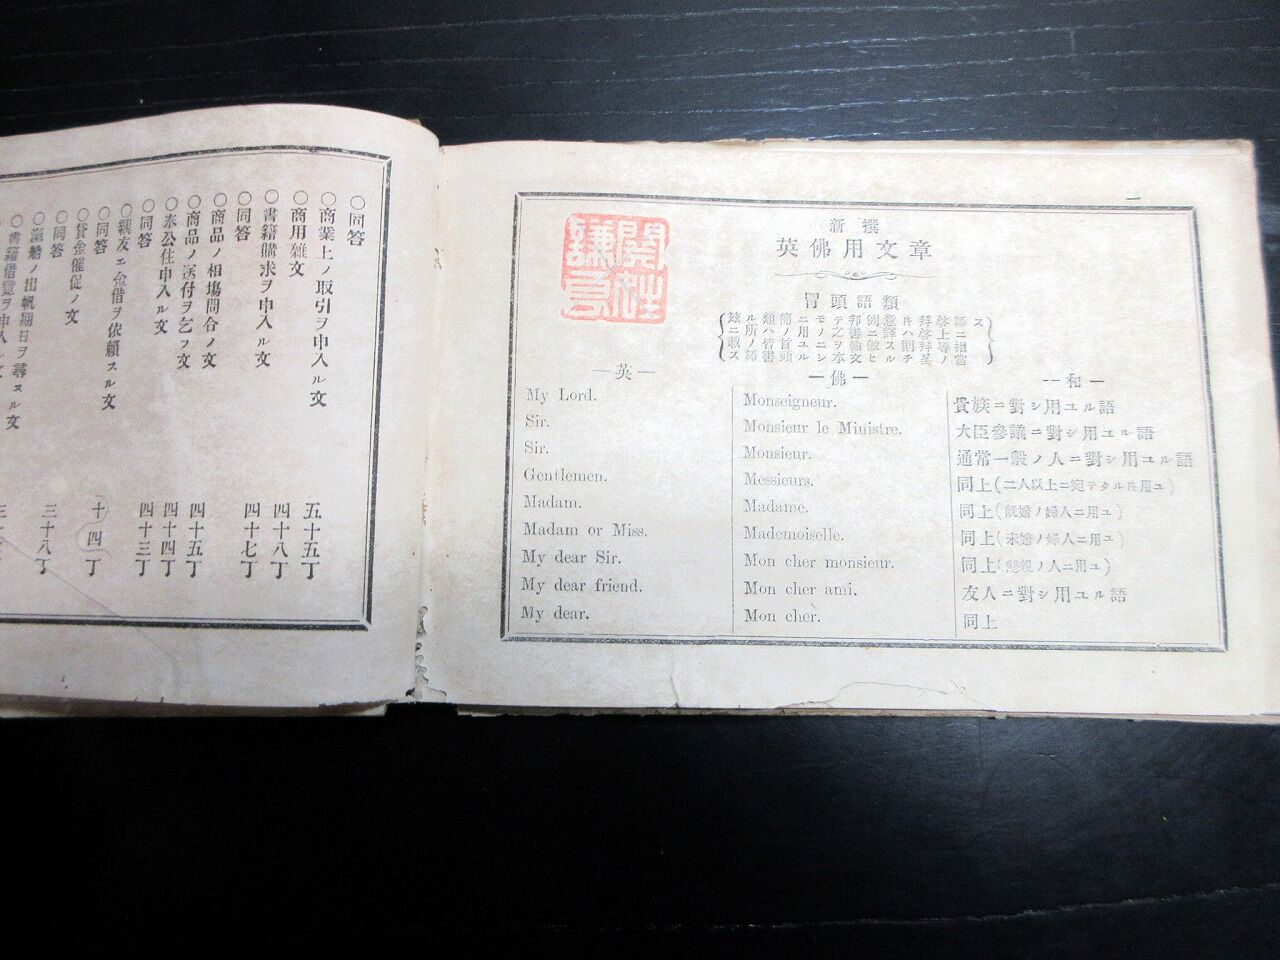 ○同答
○商業上ノ取引ヲ申入ル文 五十五丁
○商用雑文 四十八丁
○書籍購求ヲ申入ル文 四十七丁
○同答
○商品ノ相塲問合ノ文
○商品ノ送付ヲ乞フ文 四十五丁
○奉公住申入ル文 四十四丁
○同答 四十三丁
○親友エ金借ヲ依頼スル文
○同答
○貸金催促ノ文
○同答
ノ出帆期日ヲ尋ヌル文 三十八丁
○書籍借覽ヲ申入ル文
一
新撰
英佛用文章
冒頭語類
玆ニ載ス
ル所ノ語
類ハ皆書
簡ノ首頭
ニ用ユル
モノニシ
テ之ヲ本
邦書翰文
例ニ倣ヒ
意譯スル
片ハ則チ
拜啓拜呈
啓上等ノ
語ニ相當
ス
—英—
—佛—
—和—
My Lord. Monseigneur. 貴族ニ對シ用ユル語
Sir. Monsieur le Ministre. 大臣參議ニ對シ用ユル語
Sir. Monsieur. 通常一般ノ人ニ對シ用ユル語
Gentlemen. Messieurs. 同上(二人以上ニ宛テタル片用ユ)
Madam. Madame. 同上(既婚ノ婦人ニ用ユ)
Madam or Miss. Mademoiselle. 同上(未婚ノ婦人ニ用ユ)
My dear Sir. Mon cher monsieur. 同上(懇親ノ人ニ用ユ)
My dear friend. Mon cher ami. 友人ニ對シ用ユル語
My dear. Mon cher. 同上